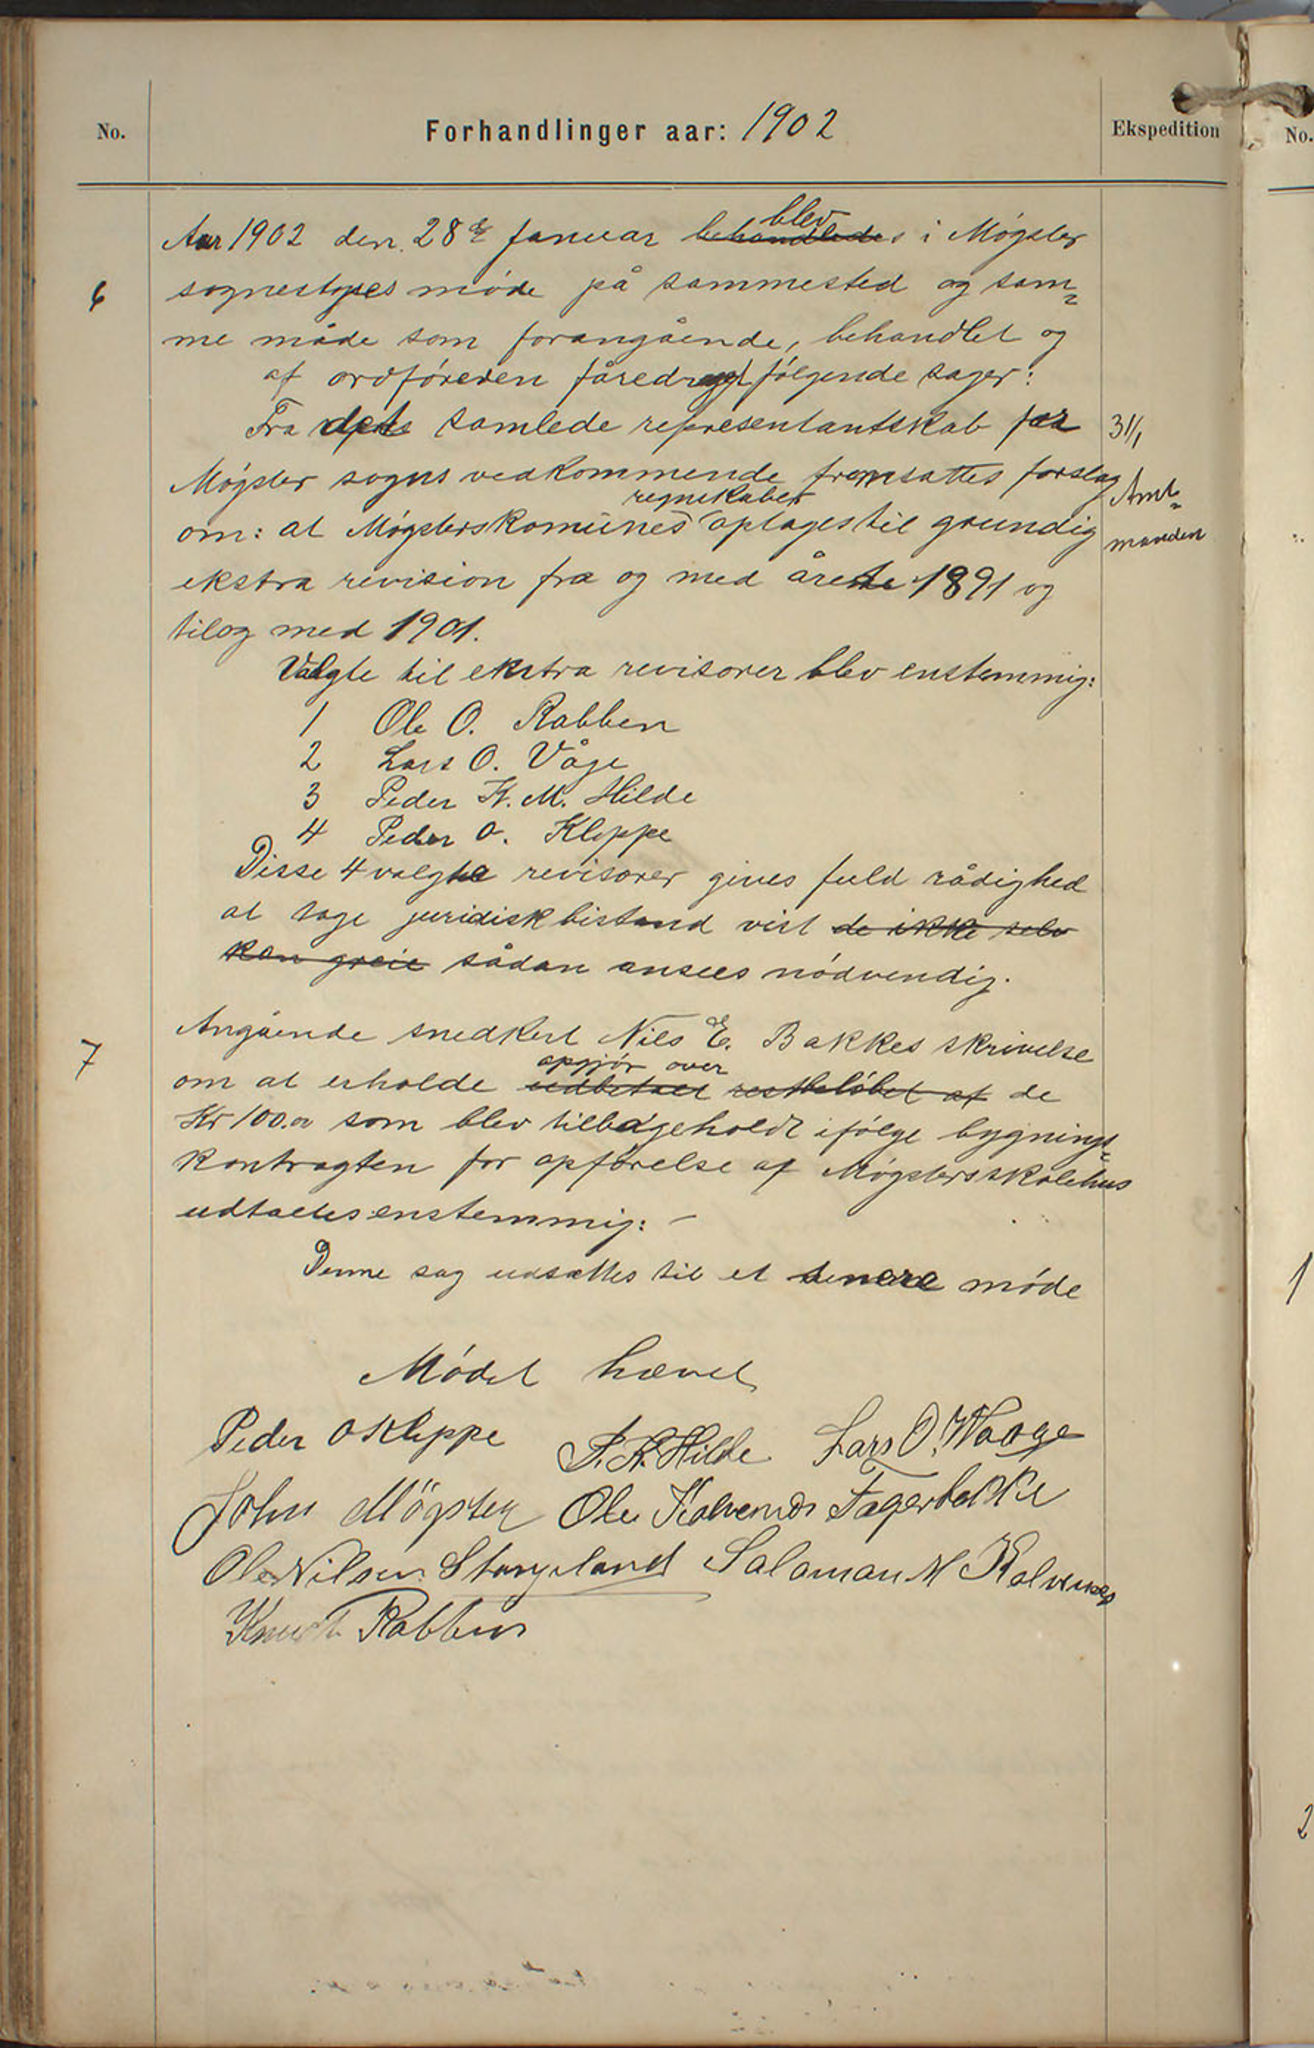 No.
Forhandlinger aar: 1902
Ekspedition
No.
blev
Aar 1902 den 28de Januar behandledes i Møgster
6
sognestyres møde på sammested og sam=
me måde som forangående, behandlet og
af ordføreren fåredraget følgende sager:
Fra dets samlede representantskab for
31/1
Møgster sogns vedkommende fremsattes forslag
Amt=
regnskaber
om: at Møgsterskomunes optages til grundig
manden
ekstra revision fra og med årete 1891 og
tilog med 1901.
Valgte til ekstra revisorer blev enstemmig:
1 Ole O. Rabben
2 Lars O. Våge
3 Peder K. M. Hilde
4 Peder O. Kleppe
Disse 4 valgte revisorer gives fuld rådighed
at tage juridisk bistand vist de ikke selv
kan greie sådan ansees nødvendig.
7
Angående snedkert Nils E. Bakkes skrivelse
opgjør over
om at erholde udbetalt restbeløbet af de
Kr 100.00 som blev tilbageholdt ifølge bygnings=
kontragten for opførelse af Møgstersskolehus
udtaltes enstemmig: –
Denne sag udsættes til et senere møde
1
Mødet hævet
Peder O Kleppe P. K. Hilde Lars O. Waage
John Møgster Ole Kalvenes Fagerbakke
Ole Nilsen Stangeland Salaman M Kalvenes
Knut Rabben
2